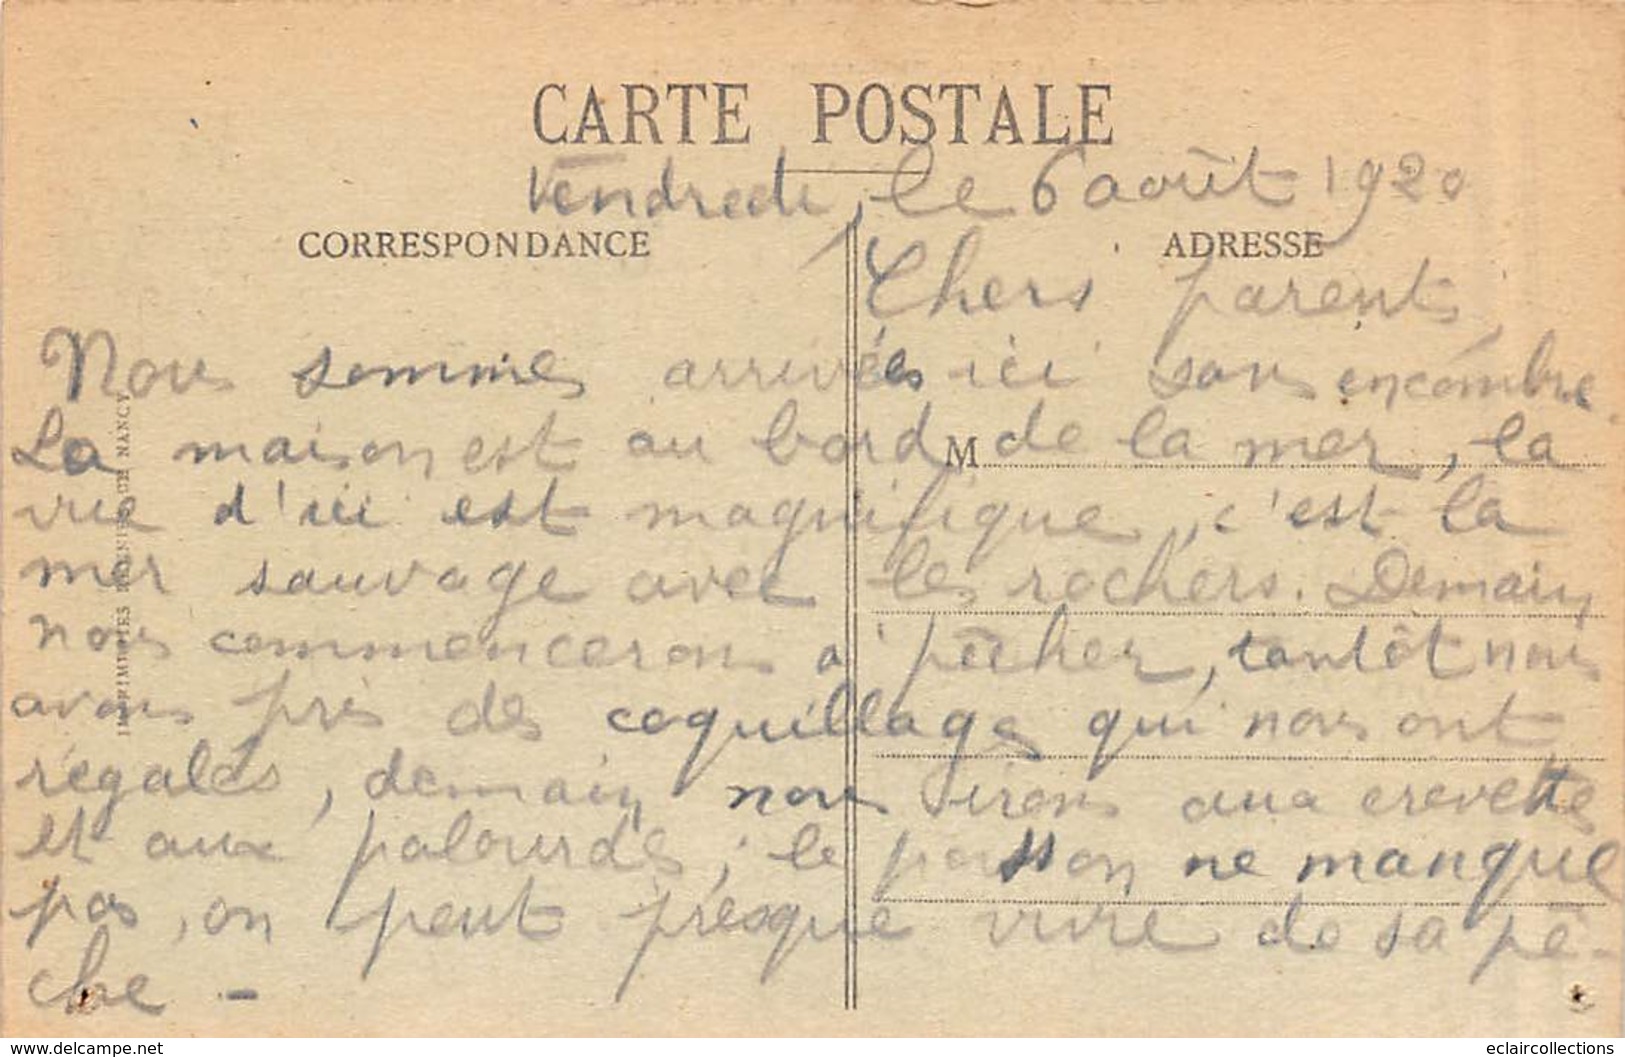 CARTE POSTALE
Vendredi, le 6 août 1920
CORRESPONDANCE
ADRESSE
Chers parents,
Nous sommes arrivées ici sans encombre.
La maison est au bord de la mer, la
M
vue d'ici est magnifique, c'est la
mer sauvage avec les rochers. Demain
nous commencerons à pêcher, tantôt nous
avons pris des coquillages qui nous ont
régalés, demain nous irons aux crevettes
et aux palourdes ; le poisson ne manque
pas, on peut presque vivre de sa pê-
che -
IMPRIMERIES RÉUNIES DE NANCY
www.delcampe.net
eclaircollections